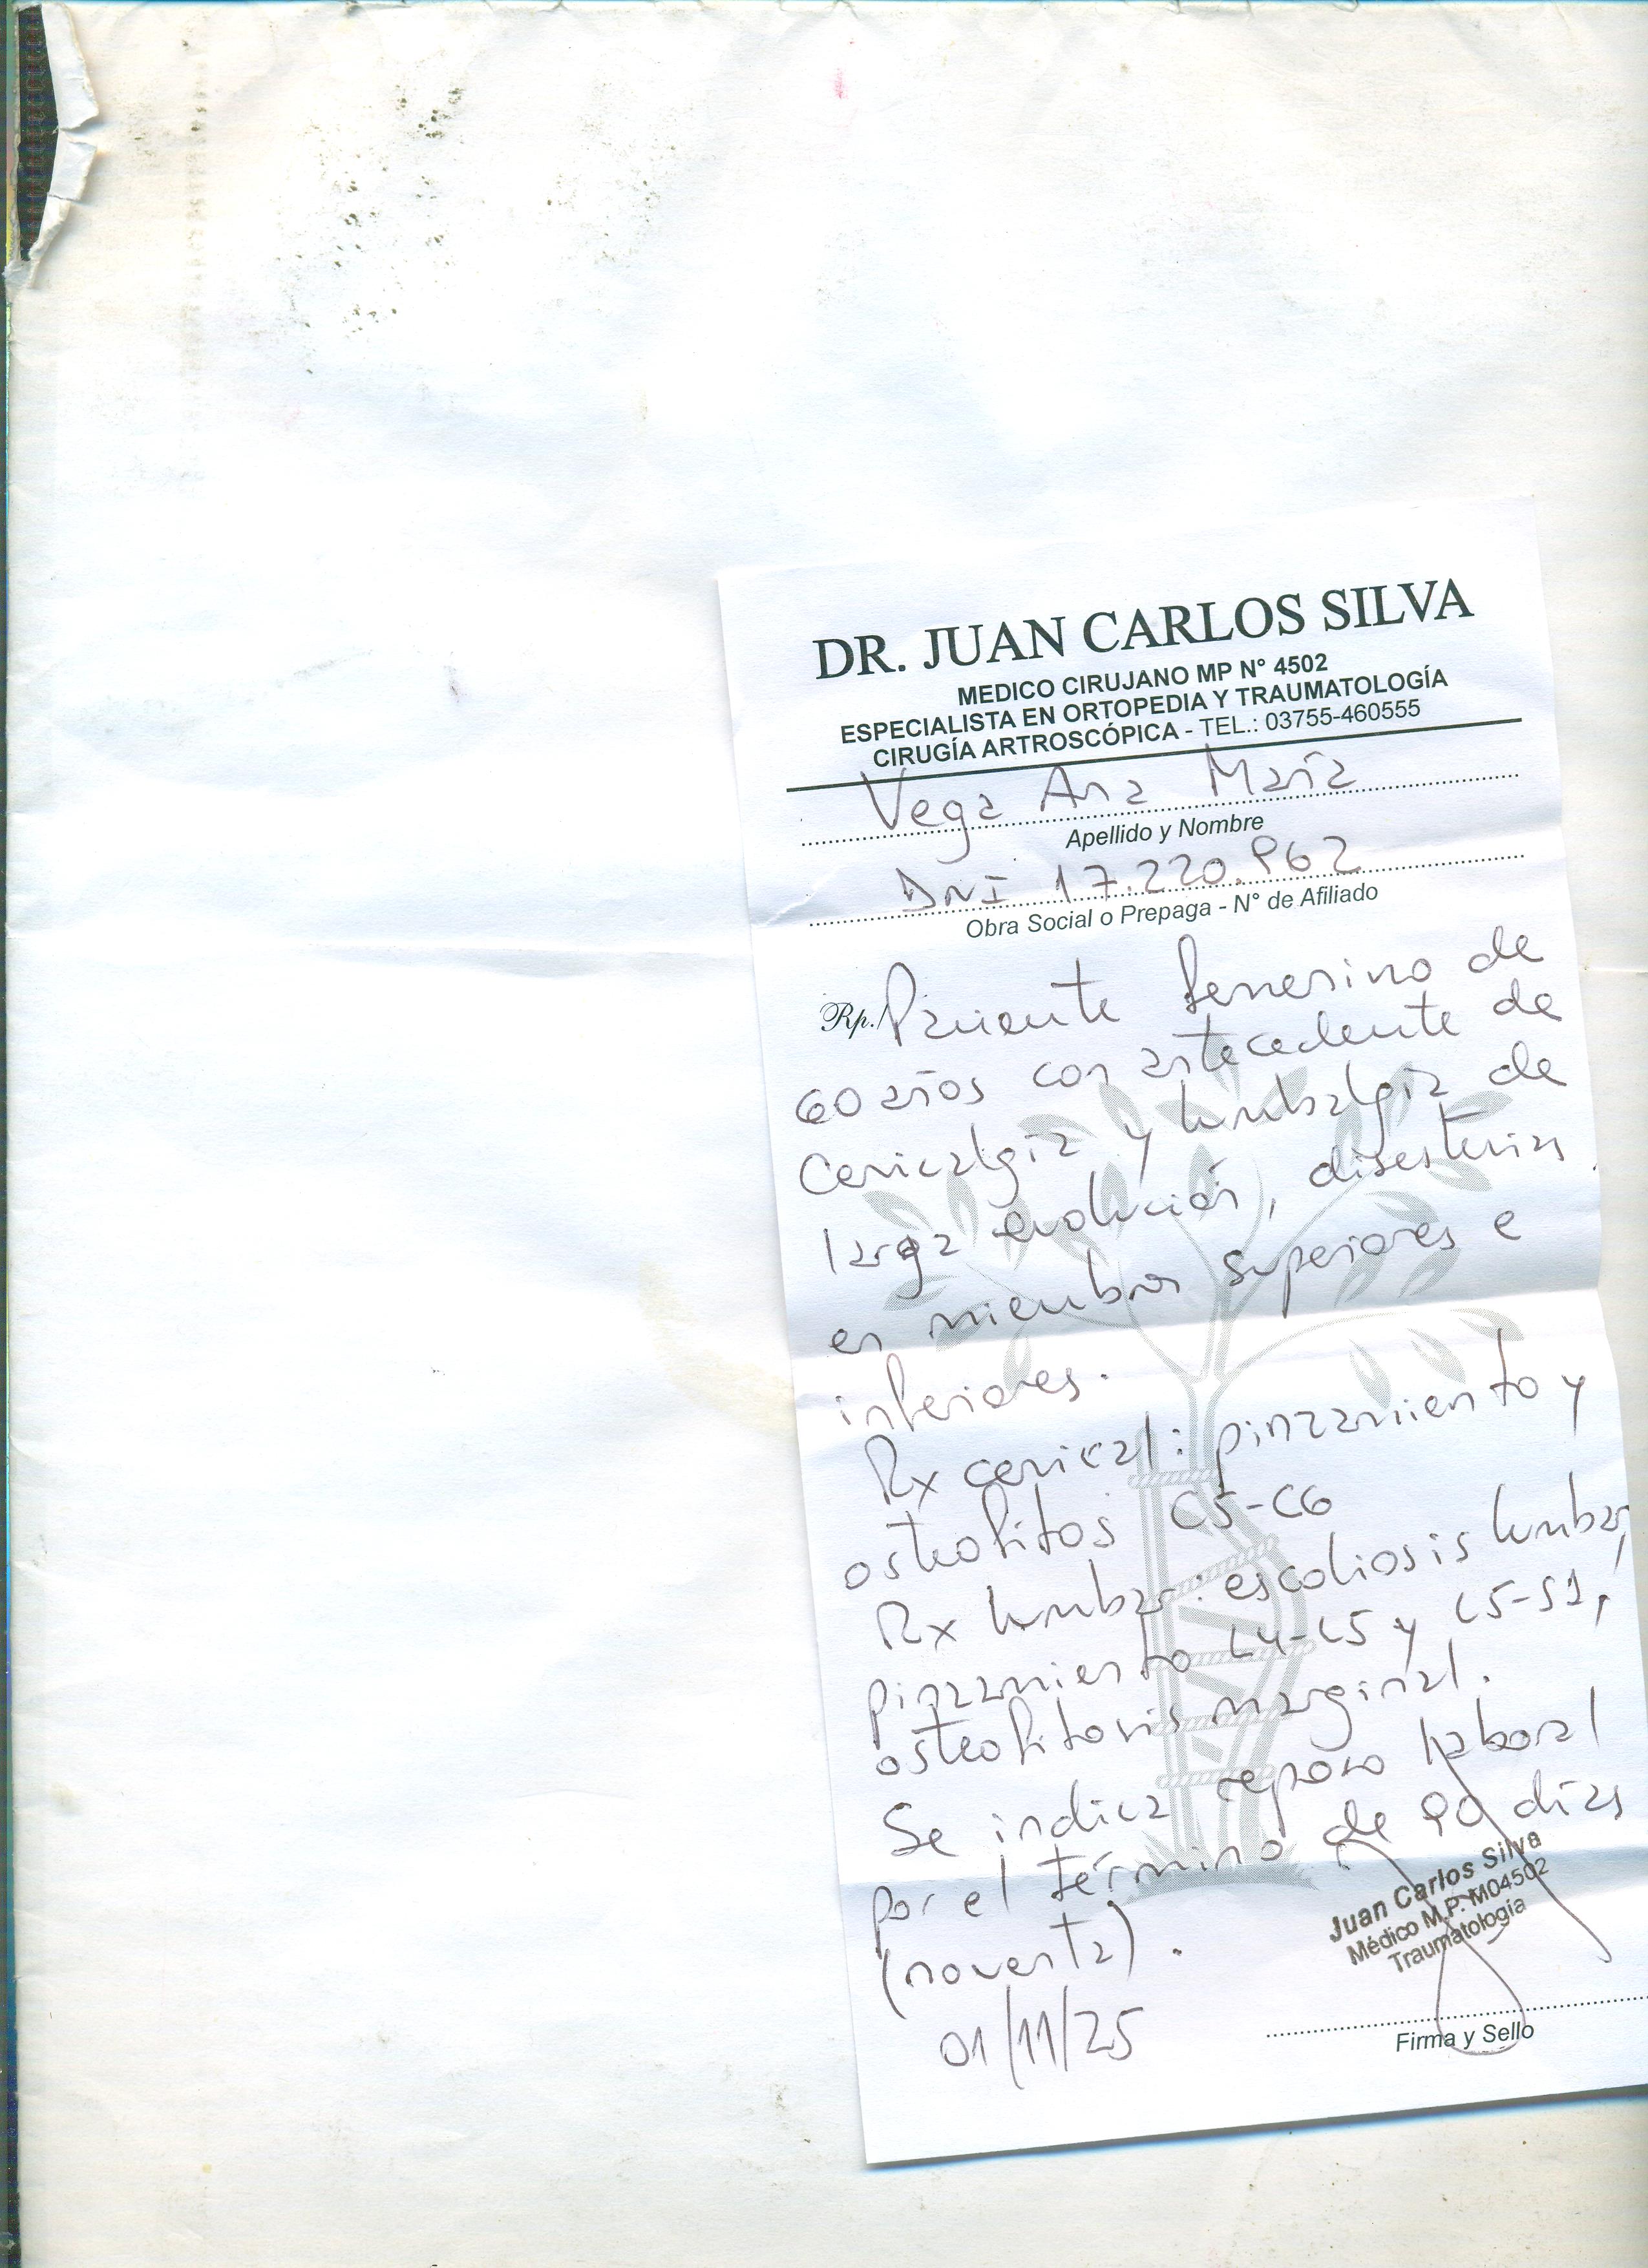 DR. JUAN CARLOS SILVA
MEDICO CIRUJANO MP N° 4502
ESPECIALISTA EN ORTOPEDIA Y TRAUMATOLOGÍA
CIRUGÍA ARTROSCÓPICA - TEL.: 03755-460555
Vega Ana María
Apellido y Nombre
DNI 17.220.962
Obra Social o Prepaga - N° de Afiliado
Rp./ Paciente femenino de
60 años con antecedente de
Cervicalgia y lumbalgia de
larga evolución, disestesias
en miembros superiores e
inferiores.
Rx cervical: pinzamiento y
osteofitos C5-C6
Rx lumbar: escoliosis lumbar,
pinzamiento L4-L5 y L5-S1,
osteofitosis marginal.
Se indica reposo laboral
por el término de 90 días
(noventa).
01/11/25
Juan Carlos Silva
Médico M.P. M04502
Traumatología
Firma y Sello